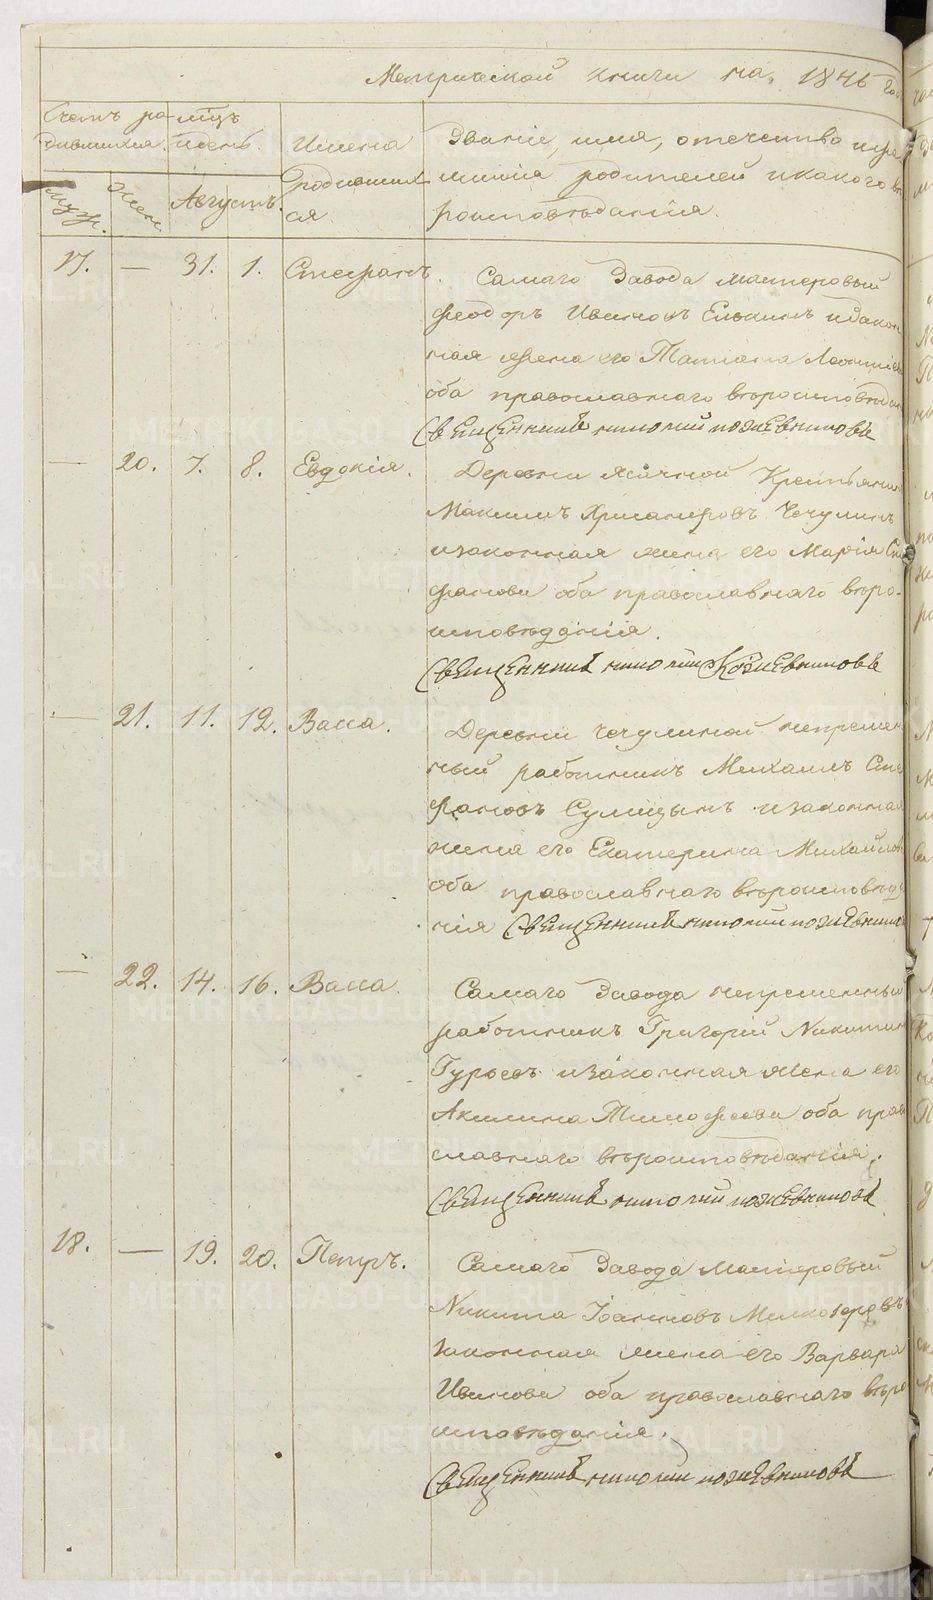 Метрической книги на 1846 го
Счетъ ро- мцъ
дившихся. и день. Имена Званіе, имя, отечество и фа
родивших милія родителей и какого вѣ
муж. жен. Августъ. ся. роисповѣданія.
17. — 31. 1. Стефанъ. Самаго Завода мастеровый
Феодоръ Ивановъ Елькинъ и закон
ная жена его Татіана Леонтіев
оба православнаго вѣроисповѣдан
Священникъ Николай Кожевниковъ
— 20. 7. 8. Евдокія. Деревни Крестьянин
Максимъ Чечулинъ
и законная жена его Марія Сте
фанова оба православнаго вѣро-
исповѣданія.
Священникъ Николай Кожевниковъ
— 21. 11. 12. Васса. Деревни Чечулиной непремен
ный работникъ Михаилъ Сте
фановъ Сулицынъ и законная
жена его Екатерина Михайлов
оба православнаго вѣроисповѣда
нія Священникъ Николай Кожевников
— 22. 14. 16. Васса. Самаго Завода непременный
работникъ Григорій Никитин
Гурьевъ и законная жена его
Акилина Тимофеева оба право
славнаго вѣроисповѣданія.
Священникъ Николай Кожевниковъ
18. — 19. 20. Петръ. Самаго Завода Мастеровый
Никита Іоанновъ Мелкозеровъ
законная жена его Варвара
Иванова оба православнаго вѣро
исповѣданія.
Священникъ Николай Кожевниковъ
METRIKI.GASO-URAL.RU